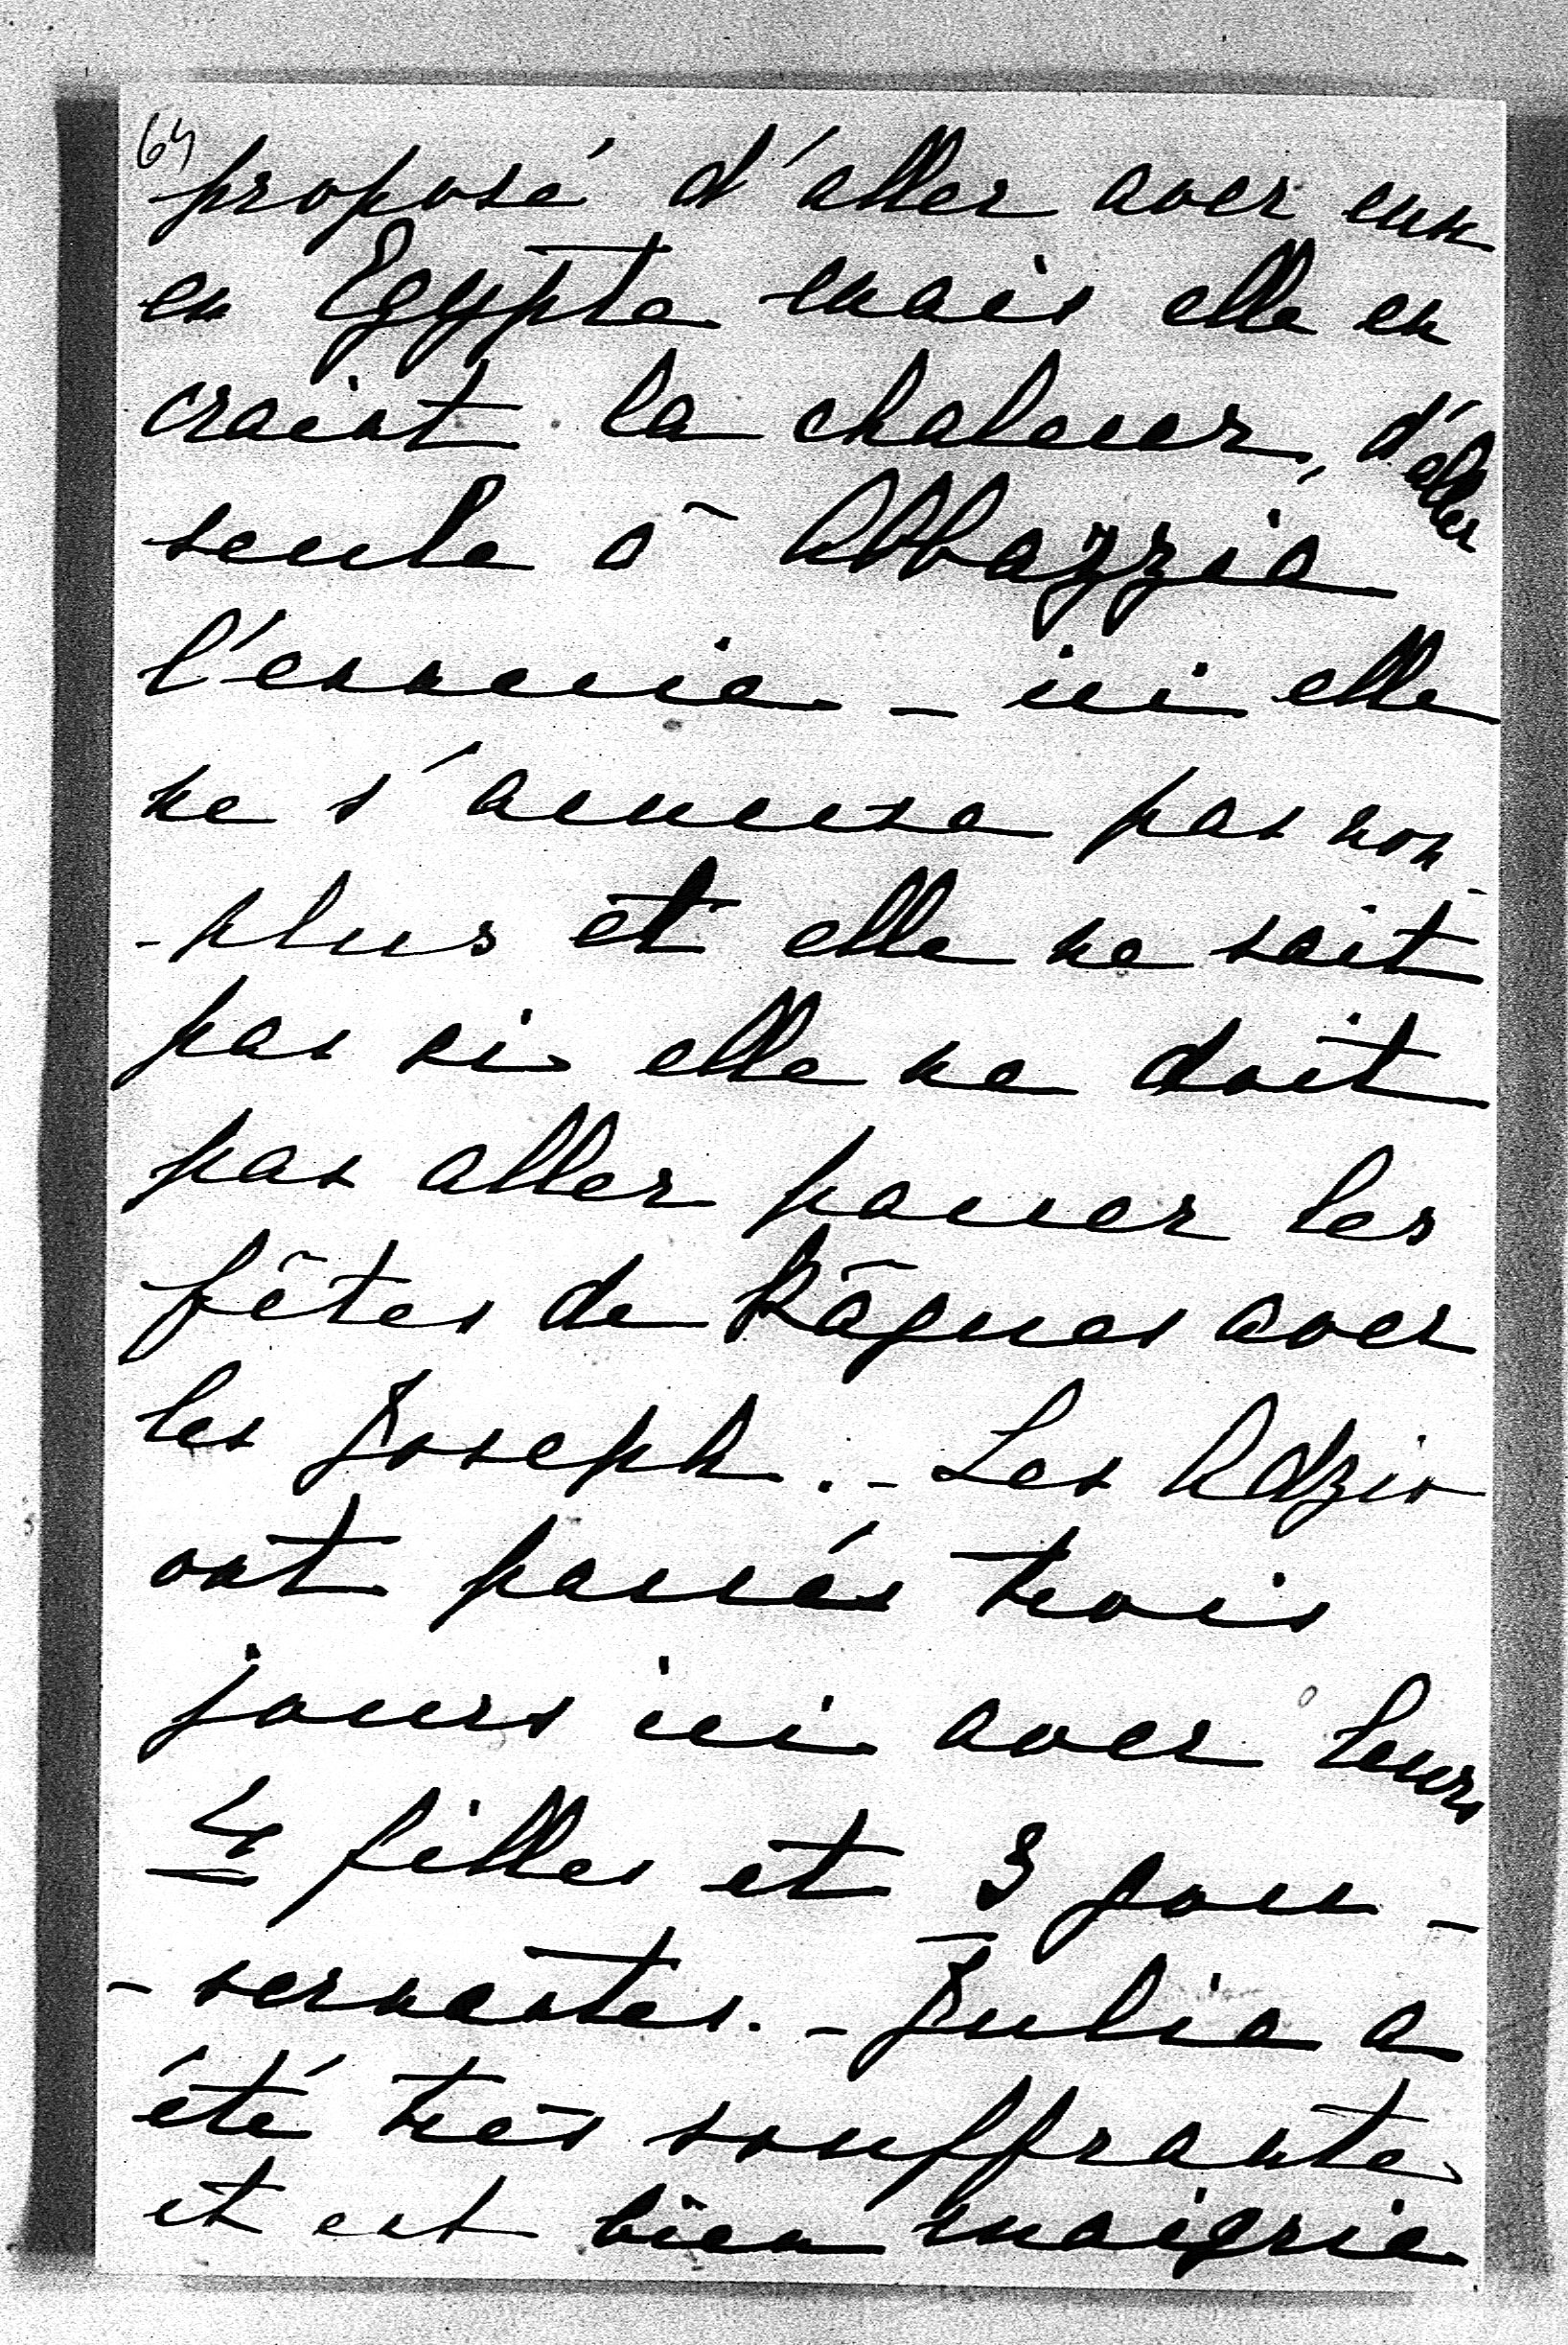 64
proposé d'aller avec eux
en Egypte mais elle en
craint la chaleur, d'aller
seule à Abbazzia
l'ennuie – ici elle
ne s'amuse pas non-
-plus et elle ne sait
pas si elle ne doit
pas aller passer les
fêtes de Pâques avec
les Joseph. – Les Adzio
ont passés trois
jours ici avec leurs
4 filles et 3 gou-
-vernantes. – Julia a
été très souffrante
et est bien maigrie